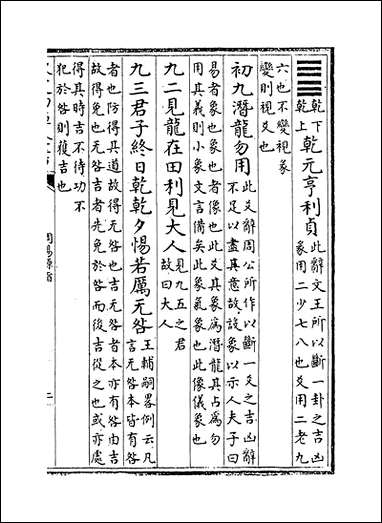 ䷀
乾下
乾上
乾元亨利貞
此辭文王所以斷一卦之吉凶
象用二少七八也爻用二老九
六也不變視彖
變則視爻也
初九潛龍勿用
此爻辭周公所作以斷一爻之吉凶辭
不足以盡其意故設象以示人夫子曰
易者象也象也者像也此爻具象為潛龍具占為勿
用具義則小象文言備矣此象氣象也此像儀象也
九二見龍在田利見大人
見九五之君
故曰大人
九三君子終日乾乾夕惕若厲无咎
王輔嗣畧例云凡
言无咎本皆有咎
者也防得其道故得无咎也吉无咎者本亦有咎由吉
故得免也无咎吉者先免於咎而後吉從之也或亦處
得其時吉不待功不
犯於咎則獲吉也